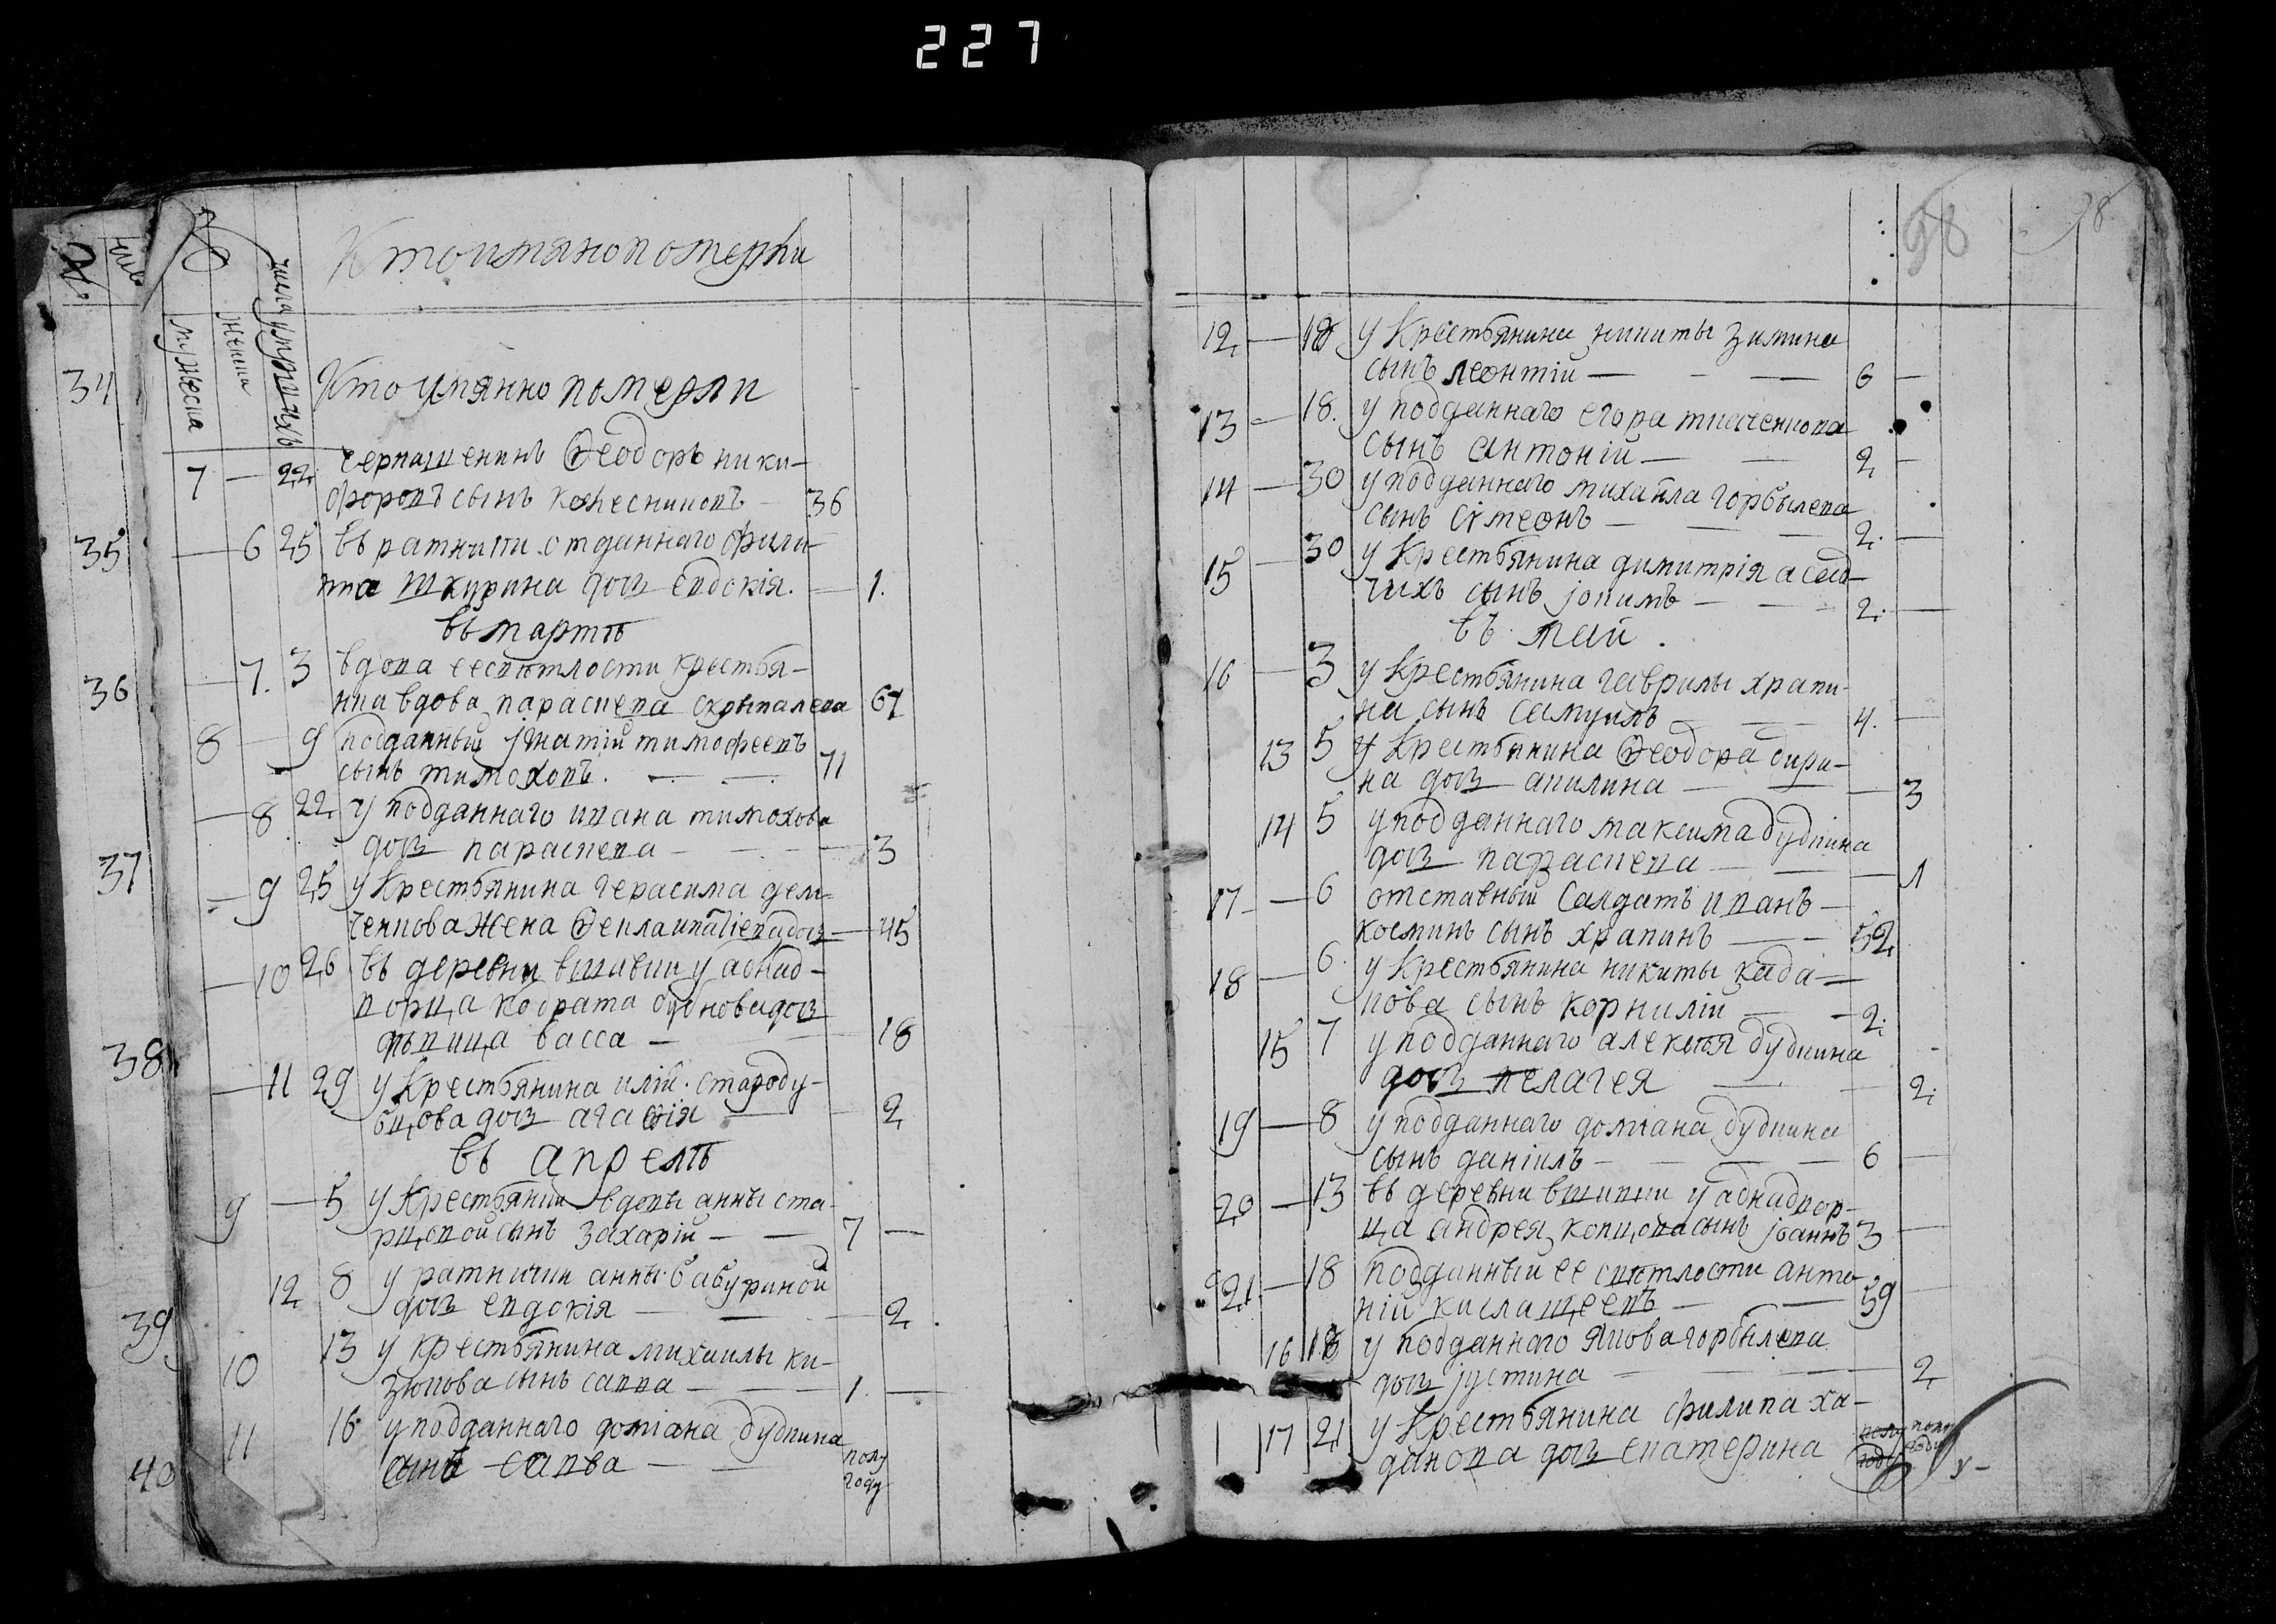 227
Кто имянно померли
98
мужеска
женска
Кто имянно померли
34
7 — 22 черкашенинъ Ѳеодоръ ники-
форовъ сынъ колесниковъ — 36
35
— 6 25 въ ратники отданнаго фили-
па шкурина дочь евдокія. — 1.
въ мартѣ
36
— 7. 3 вдова ее свѣтлости крестья-
нка вдова параскева 67
8 — 9 подданный игнатій тимофеевъ
сынъ тимоховъ. — 71
— 8 22 у подданнаго ивана тимохова
дочь параскева — 3
37
— 9 25 у крестьянина герасима дем-
ченкова жена Ѳекла — 45
— 10 26 въ деревни вшивки у аднад-
ворца кодрата дочь
дѣвица васса — 18
38
— 11 29 у крестьянина иліи староду-
бцова дочь агафія — 2
въ апрелѣ
9 — 5 у крестьянки вдовы анны ста-
рцовой сынъ захарій — 7 —
12 8 у ратнички анны бабуриной
дочь евдокія — 2
39
10 13 у крестьянина михаилы ки-
зюкова сынъ савва — 1. —
11 16 у подданнаго доміана дудкина
сынъ савва — полу
году
40
12 — 18 у крестьянина никиты зимина
сынъ леонтій — 6 —
13 — 18. у подданнаго егора ткаченкова
сынъ антоній — 2 —
14 — 30 у подданнаго михайла горбылева
сынъ сѵмеонъ — 2. —
15 — 30 у крестьянина димитрія
сынъ іокимъ — 2. —
въ май.
16 — 3 у крестьянина гаврилы храпи-
на сынъ самуилъ — 4. —
13 5 у крестьянина Ѳеодора бири-
на дочь акилина — 3
14 5 у подданнаго максима дудкина
дочь параскева — 1
17 — 6 отставный салдатъ иванъ
косминъ сынъ храпинъ — 52
18 — 6. у крестьянина никиты када-
нова сынъ корнилій — 2.
15 7 у подданнаго алексѣя дудкина
дочь пелагея — 2.
19 — 8 у подданнаго доміана дудкина
сынъ даніилъ — 6 —
20 — 13 въ деревни вшивки у аднадвор-
ца андрея копцова сынъ іоаннъ 3 —
21 — 18 подданный ее свѣтлости анто-
ній кислащеевъ — 59 —
16 18 у подданнаго якова горбылева
дочь іустина — 2
17 21 у крестьянина филипа ха-
данова дочь екатерина полу
году